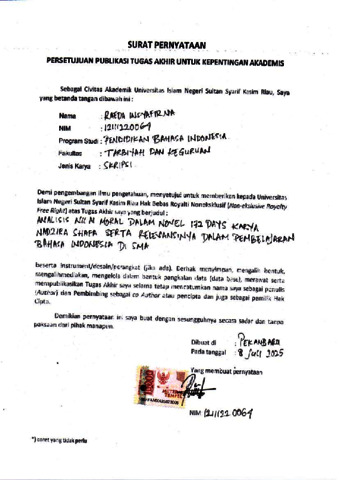 SURAT PERNYATAAN
PERSETUJUAN PUBLIKASI TUGAS AKHIR UNTUK KEPENTINGAN AKADEMIS
Sebagai Civitas Akademik Universitas Islam Negeri Sultan Syarif Kasim Riau, Saya
yang bertanda tangan dibawah ini :
Nama : RAEDA INSYAFIRNA
NIM : 12111220064
Program Studi : PENDIDIKAN BAHASA INDONESIA
Fakultas : TARBIYAH DAN KEGURUAN
Jenis Karya : SKRIPSI
Demi pengembangan ilmu pengetahuan, menyetujui untuk memberikan kepada Universitas
Islam Negeri Sultan Syarif Kasim Riau Hak Bebas Royalti Noneksklusif (Non-eksklusive Royalty
Free Right) atas Tugas Akhir saya yang berjudul :
ANALISIS NILAI MORAL DALAM NOVEL 172 DAYS KARYA
NADZIRA SHAFA SERTA RELEVANSINYA DALAM PEMBELAJARAN
BAHASA INDONESIA DI SMA
beserta instrument/desain/perangkat (jika ada). Berhak menyimpan, mengalih bentuk,
mengalihmediakan, mengelola dalam bentuk pangkalan data (data base), merawat serta
mempublikasikan Tugas Akhir saya selama tetap mencantumkan nama saya sebagai penulis
(Author) dan Pembimbing sebagai co Author atau pencipta dan juga sebagai pemilik Hak
Cipta.
Demikian pernyataan ini saya buat dengan sesungguhnya secara sadar dan tanpa
paksaan dari pihak manapun.
Dibuat di : PEKANBARU
Pada tanggal : 8 Juli 2025
Yang membuat pernyataan
TEMPEL
NIM 12111220064
*) coret yang tidak perlu